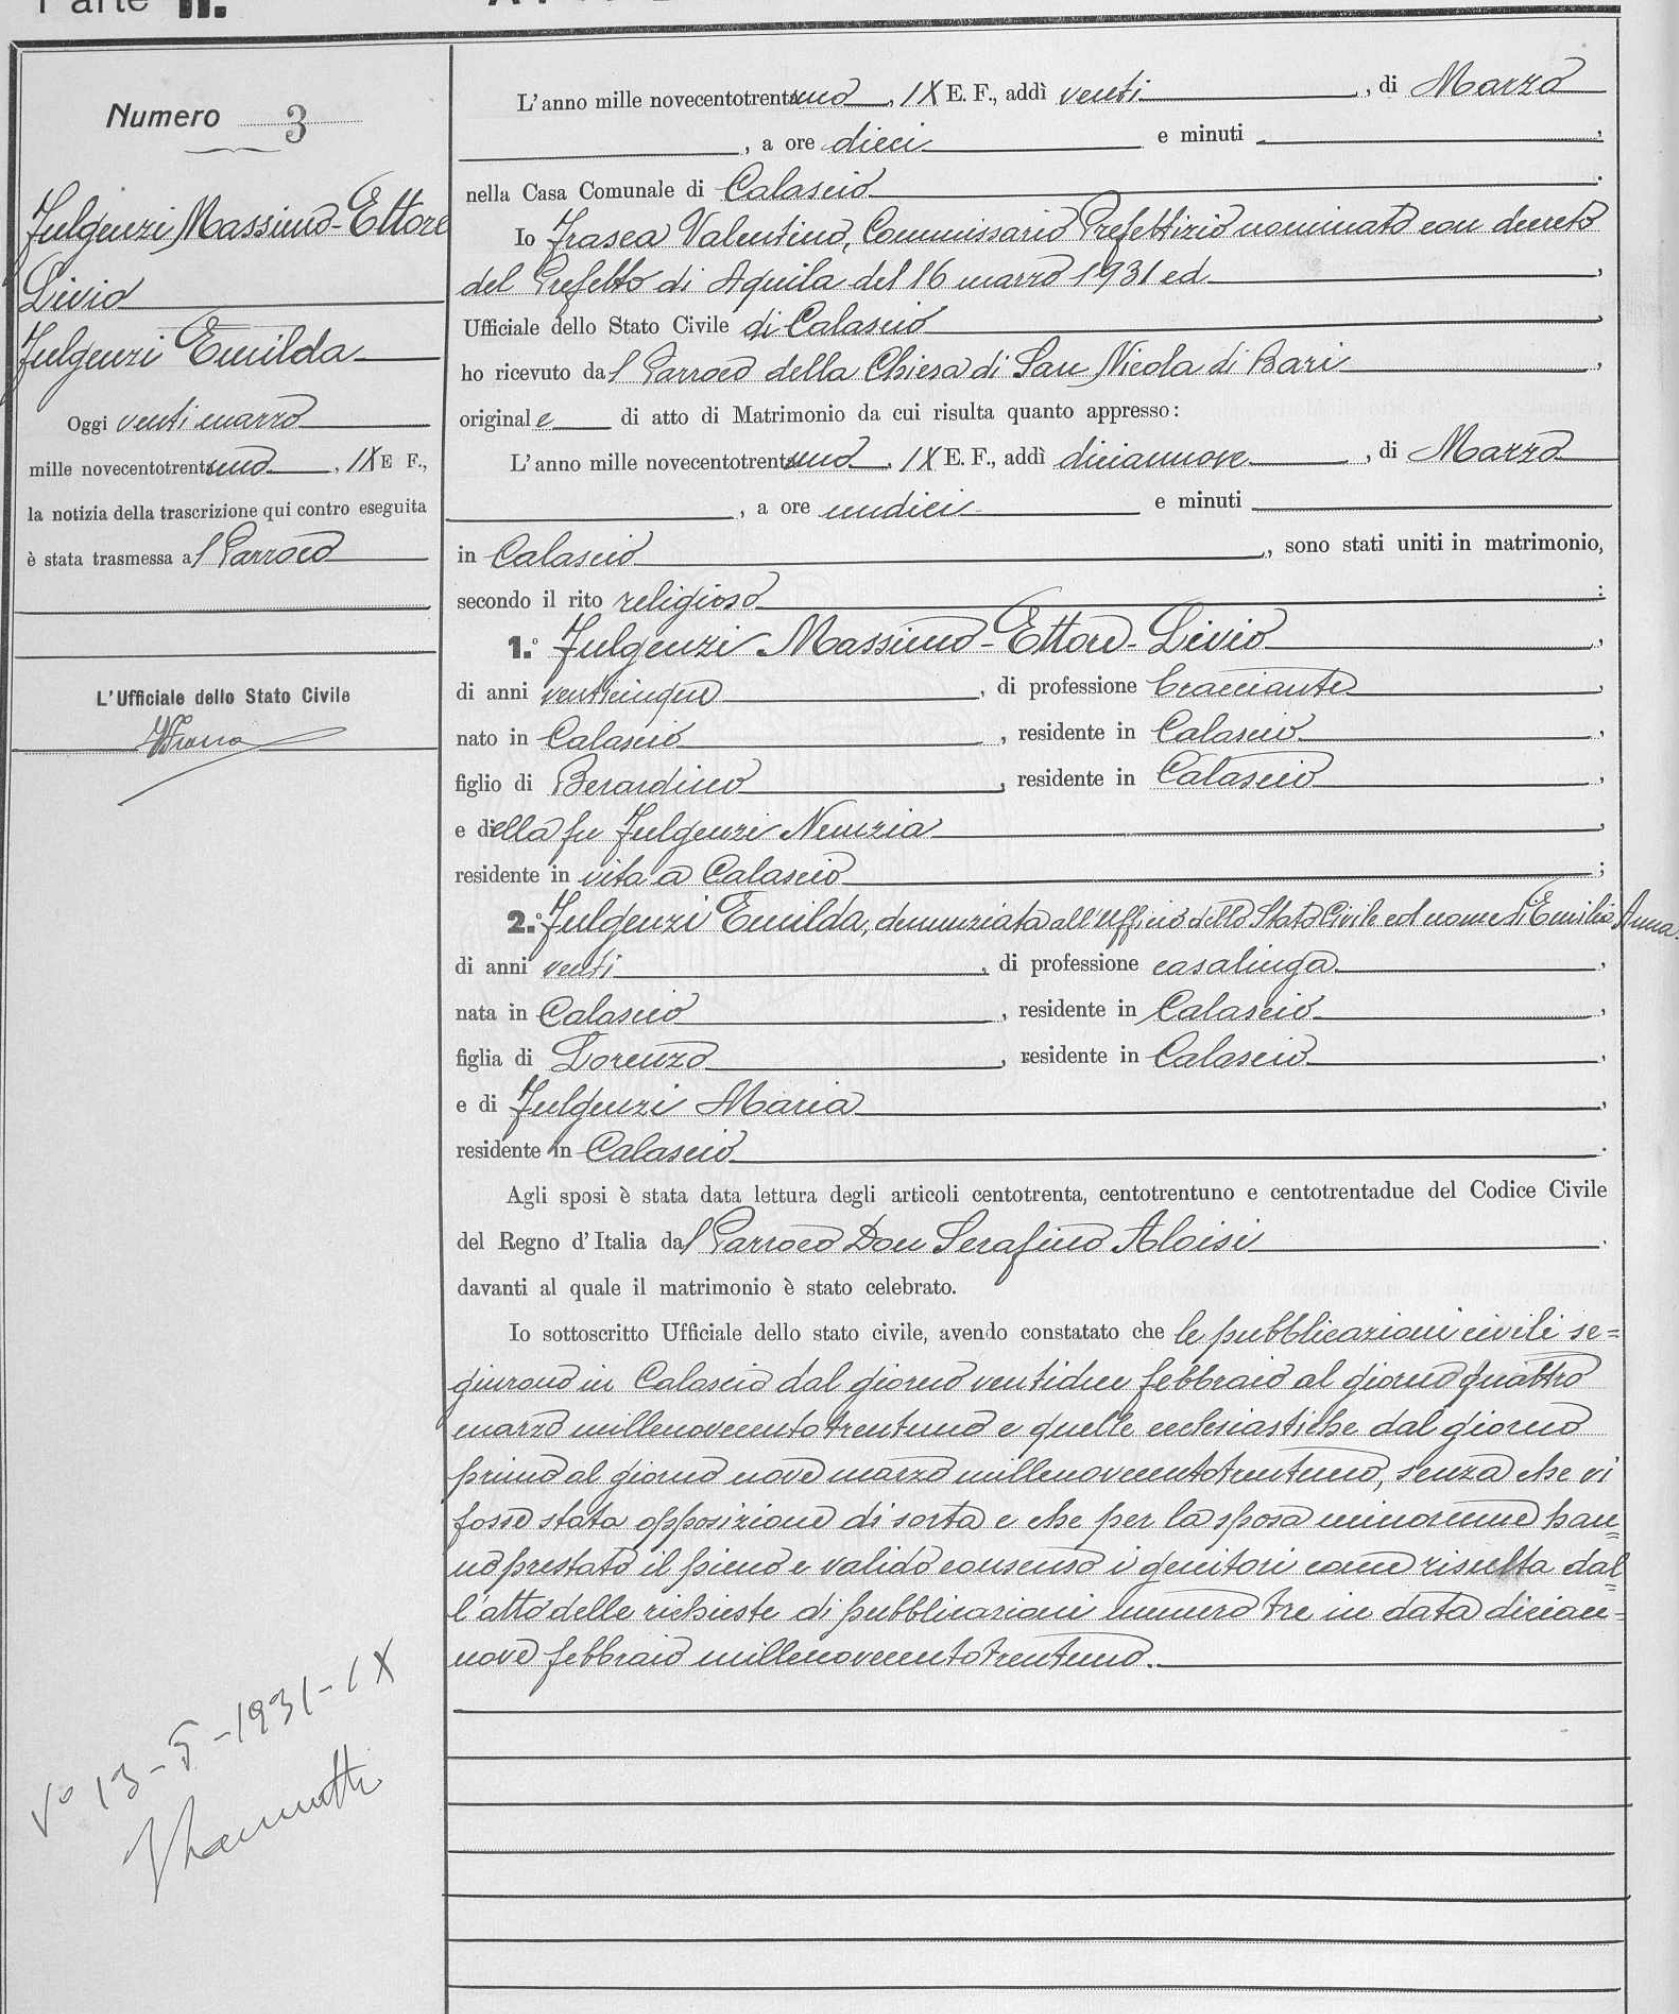 Parte II.
Numero 3
Fulgenzi Massimo-Ettore
Livio
Fulgenzi Emilda
Oggi venti marzo
mille novecentotrentuno, IX E F.,
la notizia della trascrizione qui contro eseguita
è stata trasmessa al Parroco
L'Ufficiale dello Stato Civile
L'anno mille novecentotrentuno, IX E. F., addì venti, di Marzo
, a ore dieci e minuti ,
nella Casa Comunale di Calascio.
Io Frasca Valentino, Commissario Prefettizio nominato con decreto
del Prefetto di Aquila del 16 marzo 1931 ed,
Ufficiale dello Stato Civile di Calascio,
ho ricevuto dal Parroco della Chiesa di San Nicola di Bari,
originale di atto di Matrimonio da cui risulta quanto appresso:
L'anno mille novecentotrentuno, IX E. F., addì diciannove, di Marzo
, a ore undici e minuti
in Calascio, sono stati uniti in matrimonio,
secondo il rito religioso:
1.° Fulgenzi Massimo-Ettore-Livio,
di anni venticinque, di professione bracciante,
nato in Calascio, residente in Calascio,
figlio di Berardino, residente in Calascio,
e della fu Fulgenzi Nunzia,
residente in vita a Calascio;
2.° Fulgenzi Emilda, denunziata all'Ufficio dello Stato Civile col nome di Emilia Anna
di anni venti, di professione casalinga,
nata in Calascio, residente in Calascio,
figlia di Lorenzo, residente in Calascio,
e di Fulgenzi Maria,
residente in Calascio.
Agli sposi è stata data lettura degli articoli centotrenta, centotrentuno e centotrentadue del Codice Civile
del Regno d'Italia dal Parroco Don Serafino Aloisi.
davanti al quale il matrimonio è stato celebrato.
Io sottoscritto Ufficiale dello stato civile, avendo constatato che le pubblicazioni civili se=
guirono in Calascio dal giorno ventidue febbraio al giorno quattro
marzo millenovecentotrentuno e quelle ecclesiastiche dal giorno
primo al giorno nove marzo millenovecentotrentuno, senza che vi
fosse stata opposizione di sorta e che per la sposa minorenne han=
no prestato il pieno e valido consenso i genitori come risulta dal=
l'atto delle richieste di pubblicazioni numero tre in data dician=
nove febbraio millenovecentotrentuno.
V° 13-5-1931-IX